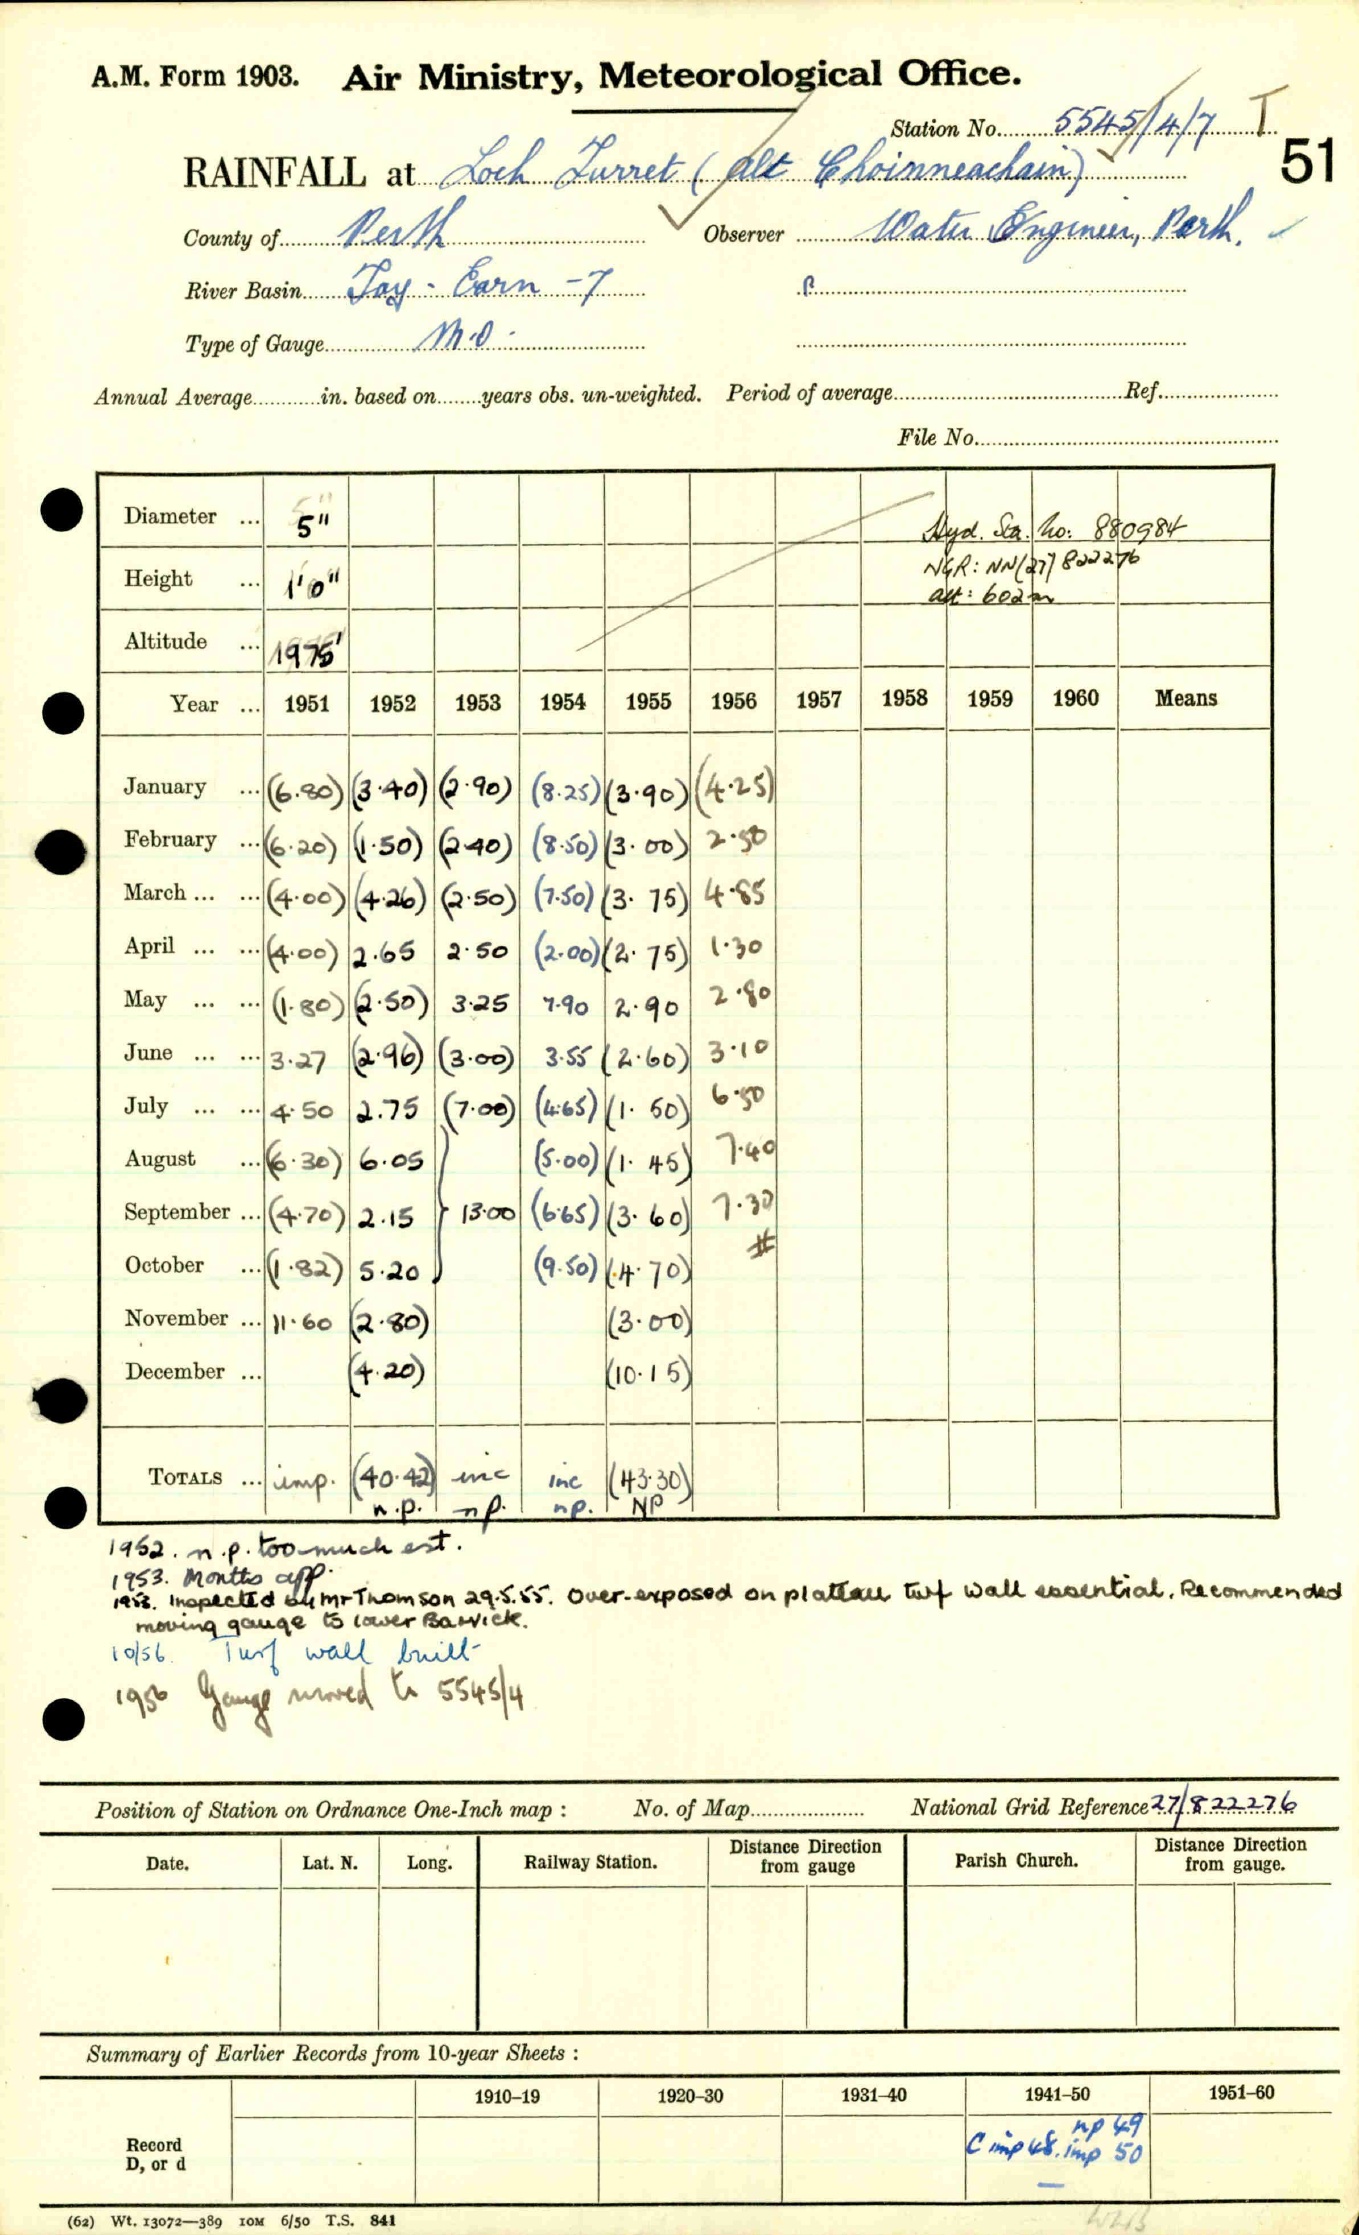 A.M. Form 1903. Air Ministry, Meteorological Office.
Station No. 5545/4/7 T
51
RAINFALL at Loch Turret (Alt Choinneachain)
County of Perth Observer Water Engineer, Perth.
River Basin Tay - Earn - 7
Type of Gauge M.O.
Annual Average in. based on years obs. un-weighted. Period of average Ref.
File No.
Diameter ... 5"
Hyd. Sta. No: 880984
Height ... 1'0"
NGR: NN(27) 822276
alt: 602m
Altitude ... 1975'
Year ... 1951 1952 1953 1954 1955 1956 1957 1958 1959 1960 Means
January ... (6.80) (3.40) (2.90) (8.25) (3.90) (4.25)
February ... (6.20) (1.50) (2.40) (8.50) (3.00) 2.50
March ... ... (4.00) (4.26) (2.50) (7.50) (3.75) 4.85
April ... ... (4.00) 2.65 2.50 (2.00) (2.75) 1.30
May ... ... (1.80) (2.50) 3.25 7.90 2.90 2.80
June ... ... 3.27 (2.96) (3.00) 3.55 (2.60) 3.10
July ... ... 4.50 2.75 (7.00) (4.65) (1.50) 6.50
August ... (6.30) 6.05 (5.00) (1.45) 7.40
September ... (4.70) 2.15 } 13.00 (6.65) (3.60) 7.30
October ... (1.82) 5.20 (9.50) (4.70) #
November ... 11.60 (2.80) (3.00)
December ... (4.20) (10.15)
TOTALS ... imp. (40.42) inc inc (43.30)
n.p. np. np. NP
1952. n.p. too much est.
1953. Months app.
1955. Inspected by Mr Thomson 29.5.55. Over-exposed on plateau turf wall essential. Recommended
moving gauge to lower Barvick.
10/56. Turf wall built
1956 Gauge moved to 5545/4
Position of Station on Ordnance One-Inch map : No. of Map National Grid Reference 27/822276
Date. Lat. N. Long. Railway Station. Distance from gauge Direction Parish Church. Distance from gauge. Direction
Summary of Earlier Records from 10-year Sheets :
1910–19 1920–30 1931–40 1941–50 1951–60
Record
D, or d
np 49
C imp 48. imp 50
(62) Wt. 13072—389 10M 6/50 T.S. 841